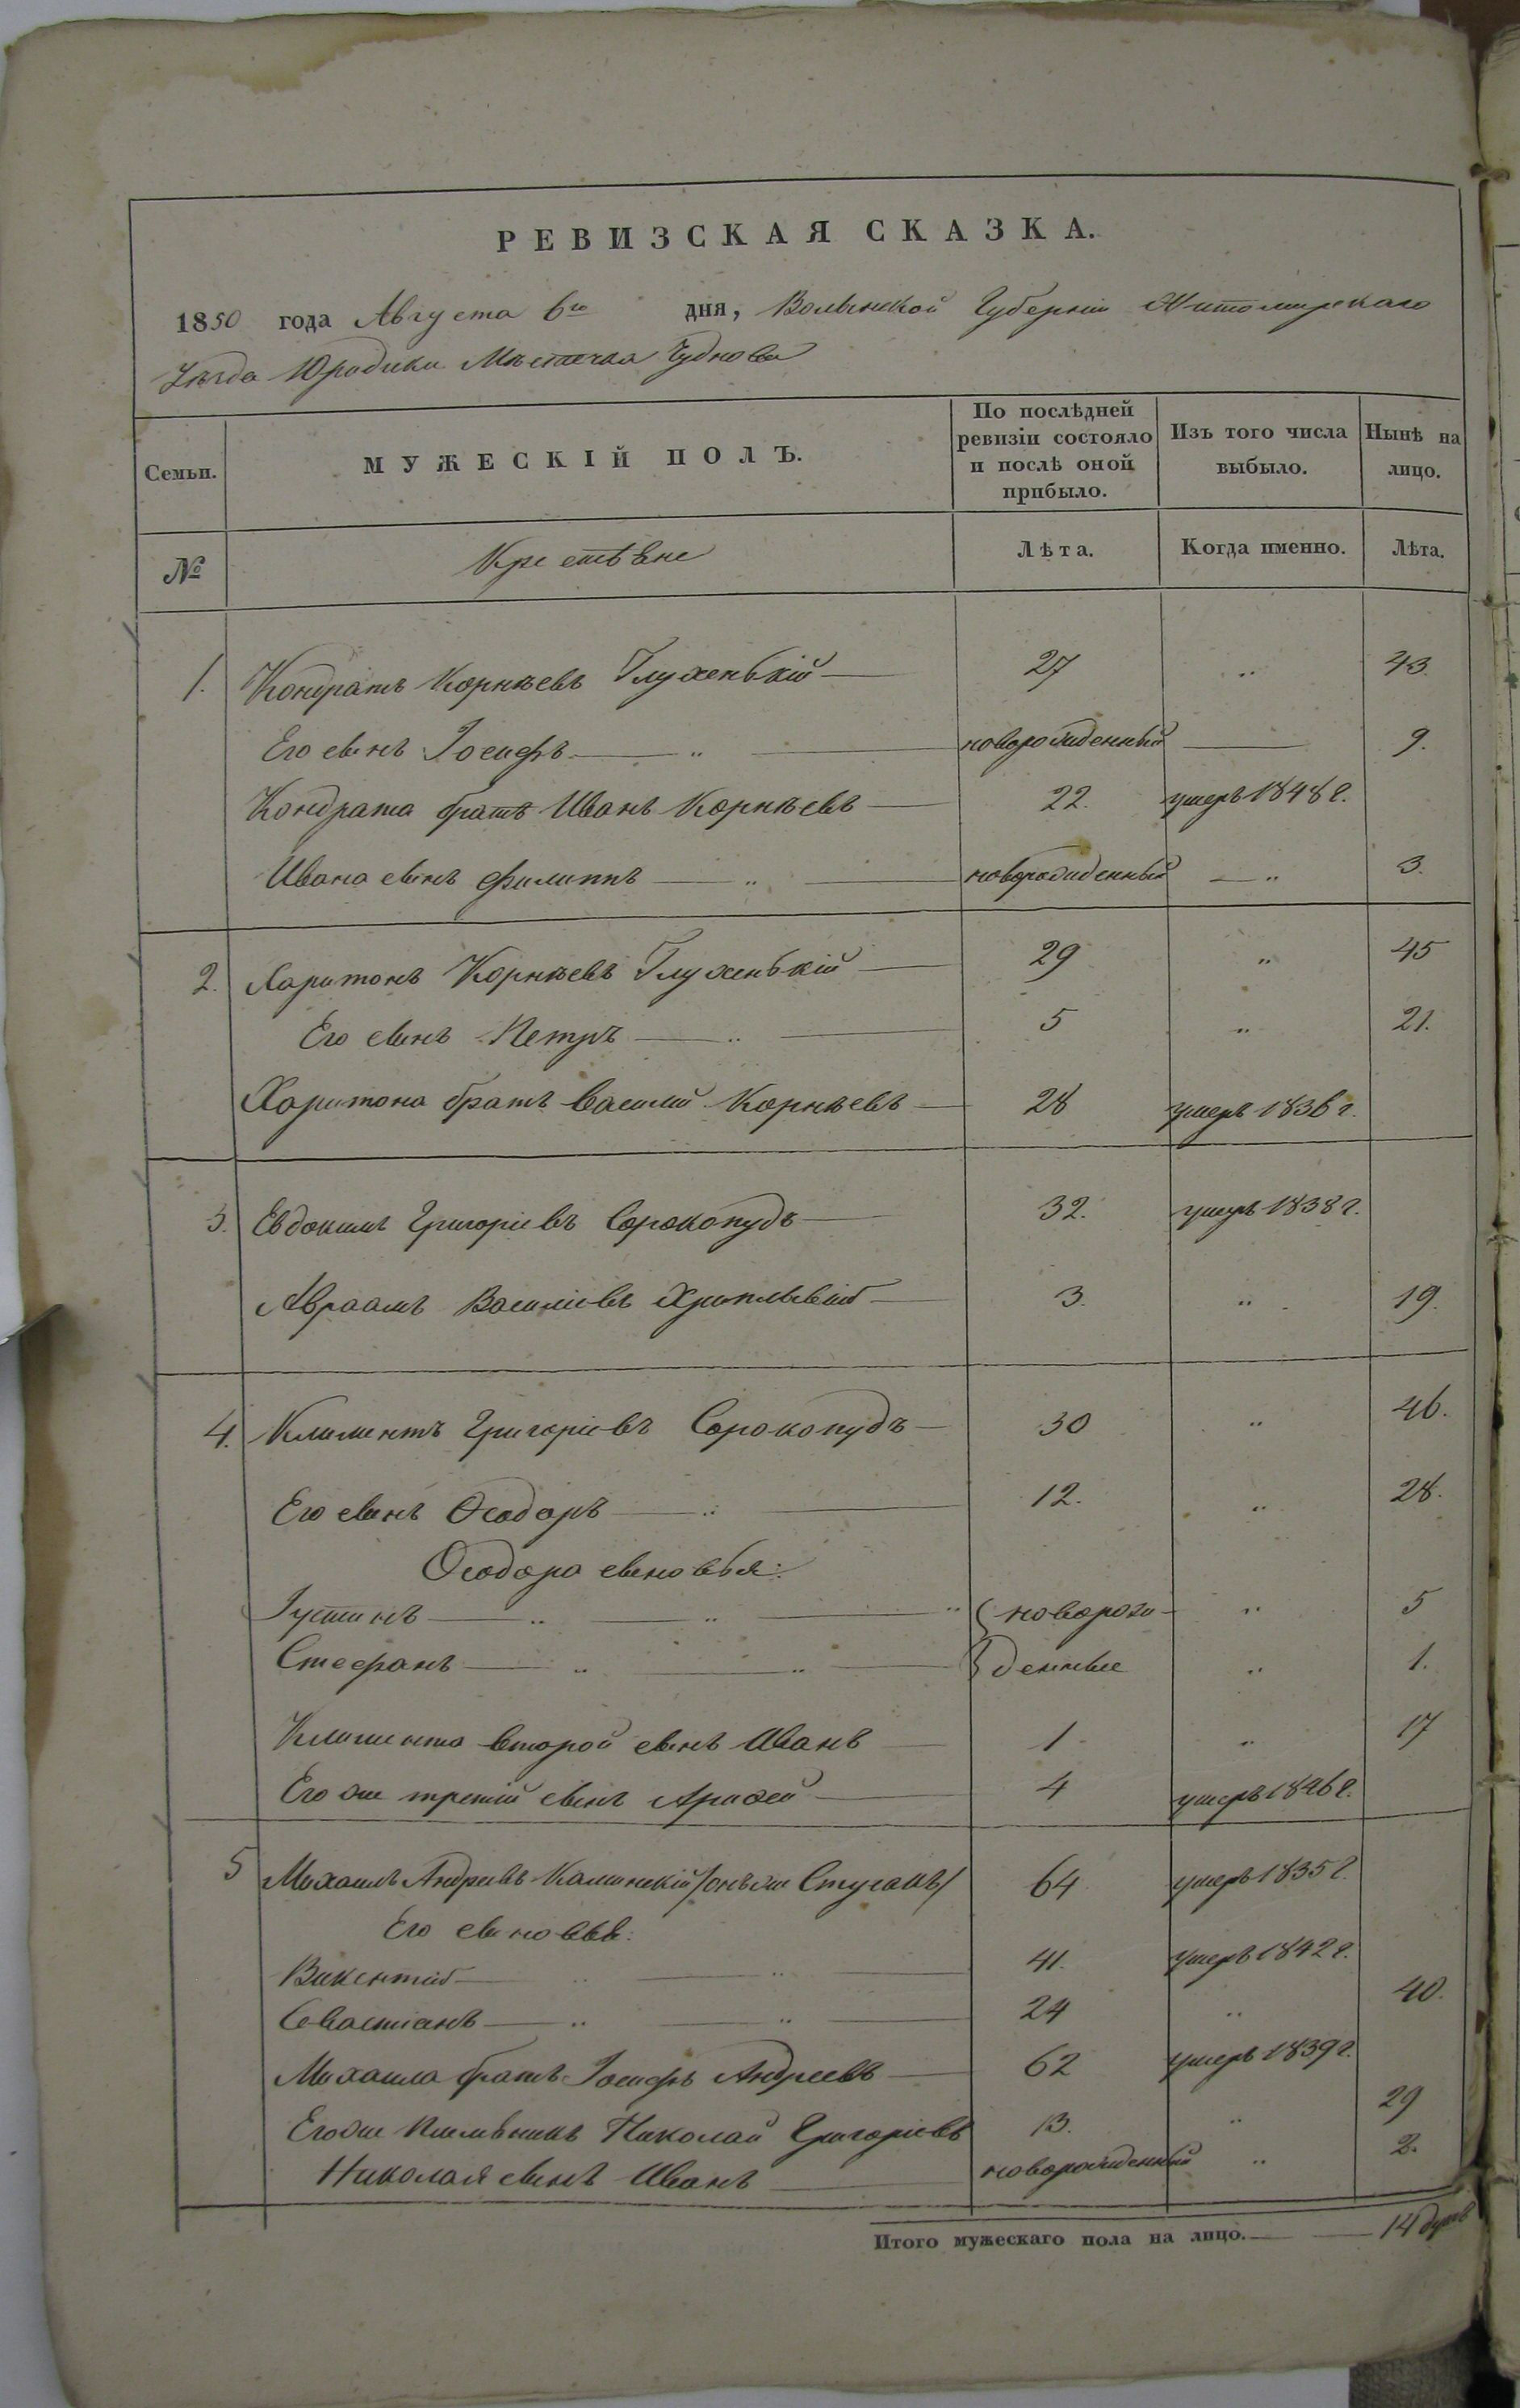 РЕВИЗСКАЯ СКАЗКА.
1850 года Августа 6го дня, Волынской Губерніи Житомирскаго
Уѣзда Юридики Мѣстечка Чуднова
Семьи. МУЖЕСКІЙ ПОЛЪ. По послѣдней ревизіи состояло и послѣ оной прибыло. Изъ того числа выбыло. Нынѣ на лицо.
№ Крестьяне Лѣта. Когда именно. Лѣта.
1. Кондратъ Корнѣевъ Глухенькій 27 " 43.
Его сынъ Іосифъ " новорожденный 9.
Кондрата братъ Иванъ Корнѣевъ 22. умеръ 1848 г.
Ивана сынъ Филиппъ " новорожденный " 3.
2. Харитонъ Корнѣевъ Глухенькій 29 " 45
Его сынъ Петръ " 5 " 21.
Харитона братъ Василій Корнѣевъ 28 умеръ 1836 г.
3. Евдокимъ Григоріевъ Сорокопудъ 32. умеръ 1838 г.
Авраамъ Василіевъ 3. " 19.
4. Климентъ Григоріевъ Сорокопудъ 30 " 46.
Его сынъ Ѳеодоръ " 12. " 28.
Ѳеодора сыновья:
Іустинъ " " " новорож- " 5
Стефанъ " " денные " 1.
Климента второй сынъ Иванъ 1 " 17
Его же третій сынъ 4 умеръ 1846 г.
5 Михаилъ Андреевъ Калинскій /онъ же Стуганъ/ 64 умеръ 1835 г.
Его сыновья:
Викентій " " 41. умеръ 1842 г.
Севастіанъ " " 24 " 40.
Михаила братъ Іосифъ Андреевъ 62 умеръ 1839 г.
Его же племянникъ Николай Григоріевъ 13. " 29
Николая сынъ Иванъ новорожденный " 2.
Итого мужескаго пола на лицо. 14 душъ